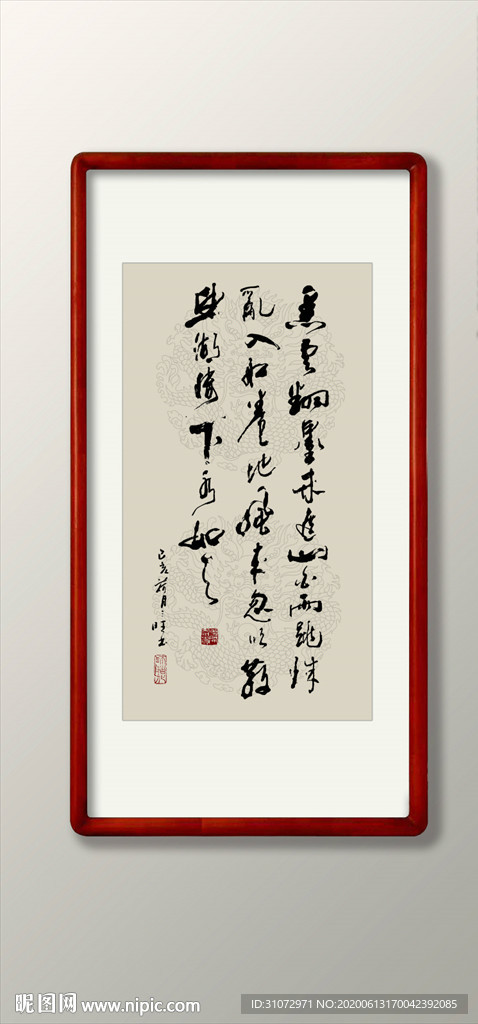 黑雲翻墨未遮山白雨跳珠
亂入船卷地風來忽吹散
望湖樓下水如天
己亥荷月
昵图网 www.nipic.com
ID:31072971 NO:20200613170042392085